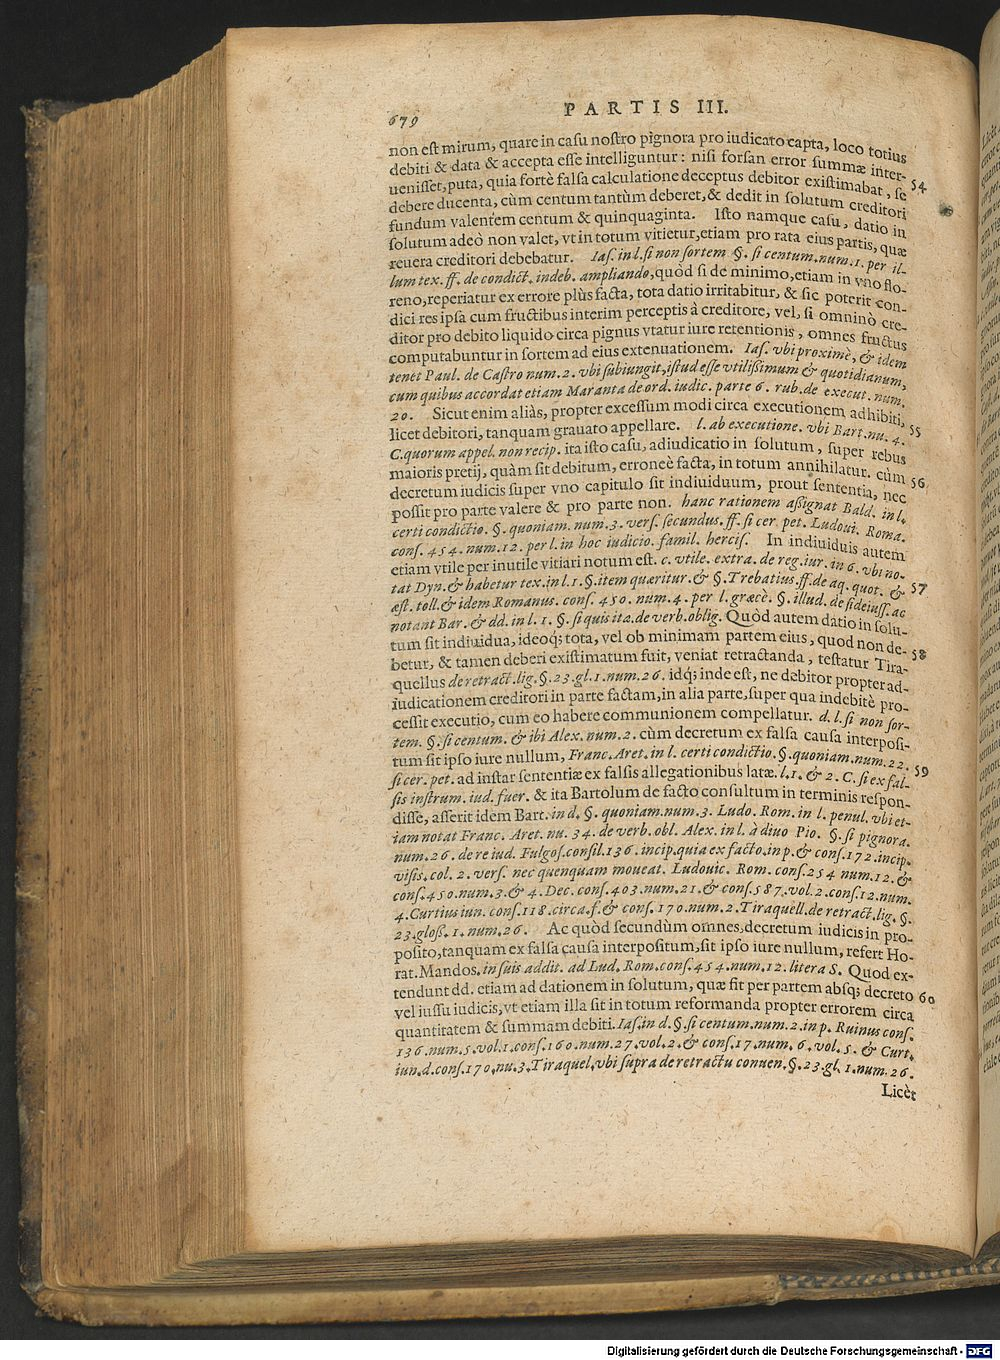 679 PARTIS III.
non est mirum, quare in casu nostro pignora pro iudicato capta, loco totius
debiti & data & accepta esse intelliguntur: nisi forsan error summæ inter-
uenisset, puta, quia fortè falsa calculatione deceptus debitor existimabat, se 54
debere ducenta, cùm centum tantùm deberet, & dedit in solutum creditori
fundum valentem centum & quinquaginta. Isto namque casu, datio in
solutum adeò non valet, vt in totum vitietur, etiam pro rata eius partis, quæ
reuera creditori debebatur. Ias. in l. si non sortem §. si centum. num. 1. per il-
lum tex. ff. de condict. indeb. ampliando, quòd si de minimo, etiam in vno flo-
reno, reperiatur ex errore plùs facta, tota datio irritabitur, & sic poterit con-
dici res ipsa cum fructibus interim perceptis à creditore, vel, si omninò cre-
ditor pro debito liquido circa pignus vtatur iure retentionis, omnes fructus
computabuntur in sortem ad eius extenuationem. Ias. vbi proximè, & idem
tenet Paul. de Castro num. 2. vbi subiungit, istud esse vtilißimum & quotidianum,
cum quibus accordat etiam Maranta de ord. iudic. parte 6. rub. de execut. num.
20. Sicut enim aliàs, propter excessum modi circa executionem adhibiti,
licet debitori, tanquam grauato appellare. l. ab executione. vbi Bart. nu. 4. 55
C. quorum appel. non recip. ita isto casu, adiudicatio in solutum, super rebus
maioris pretij, quàm sit debitum, erroneè facta, in totum annihilatur. cùm 56
decretum iudicis super vno capitulo sit indiuiduum, prout sententia, nec
possit pro parte valere & pro parte non. hanc rationem aßignat Bald. in l.
certi condictio. §. quoniam. num. 3. vers. secundus. ff. si cer pet. Ludoui. Roma.
cons. 454. num. 12. per l. in hoc iudicio. famil. hercis. In indiuiduis autem
etiam vtile per inutile vitiari notum est. c. vtile. extra. de reg. iur. in 6. vbi no-
tat Dyn. & habetur tex. in l. 1. §. item quæritur. & §. Trebatius. ff. de aq. quot. & 57
æst. toll. & idem Romanus. cons. 450. num. 4. per l. græcè. §. illud. de fideiuss. ac
notant Bar. & dd. in l. 1. §. si quis ita. de verb. oblig. Quòd autem datio in solu-
tum sit indiuidua, ideoq; tota, vel ob minimam partem eius, quod non de- 58
betur, & tamen deberi existimatum fuit, veniat retractanda, testatur Tira-
quellus de retract. lig. §. 23. gl. 1. num. 26. idq; inde est, ne debitor propter ad-
iudicationem creditori in parte factam, in alia parte, super qua indebitè pro-
cessit executio, cum eo habere communionem compellatur. d. l. si non sor-
tem. §. si centum. & ibi Alex. num. 2. cùm decretum ex falsa causa interposi-
tum sit ipso iure nullum, Franc. Aret. in l. certi condictio. §. quoniam. num. 22. 59
si cer. pet. ad instar sententiæ ex falsis allegationibus latæ. l. 1. & 2. C. si ex fal-
sis instrum. iud. fuer. & ita Bartolum de facto consultum in terminis respon-
disse, asserit idem Bart. in d. §. quoniam. num. 3. Ludo. Rom. in l. penul. vbi et-
iam notat Franc. Aret. nu. 34. de verb. obl. Alex. in l. à diuo Pio. §. si pignora.
num. 26. de re iud. Fulgos. consil. 136. incip. quia ex facto. in p. & cons. 172. incip.
visis. col. 2. vers. nec quenquam moueat. Ludouic. Rom. cons. 254 num. 12. &
cons. 450. num. 3. & 4. Dec. cons. 403. num. 21. & cons. 587. vol. 2. cons. 12. num.
4. Curtius iun. cons. 118. circa. f. & cons. 170. num. 2. Tiraquell. de retract. lig. §.
23. gloß. 1. num. 26. Ac quòd secundùm omnes, decretum iudicis in pro-
posito, tanquam ex falsa causa interpositum, sit ipso iure nullum, refert Ho-
rat. Mandos. in suis addit. ad Lud. Rom. cons. 454. num. 12. litera S. Quod ex-
tendunt dd. etiam ad dationem in solutum, quæ fit per partem absq; decreto 60
vel iussu iudicis, vt etiam illa sit in totum reformanda propter errorem circa
quantitatem & summam debiti. Ias. in d. §. si centum. num. 2. in p. Ruinus cons.
136. num. 5. vol. 1. cons. 160. num. 27. vol. 2. & cons. 17. num. 6. vol. 5. & Curt.
iun. d. cons. 170. nu. 3. Tiraquel. vbi supra de retractu conuen. §. 23. gl. 1. num. 26.
Licèt
Digitalisierung gefördert durch die Deutsche Forschungsgemeinschaft - DFG